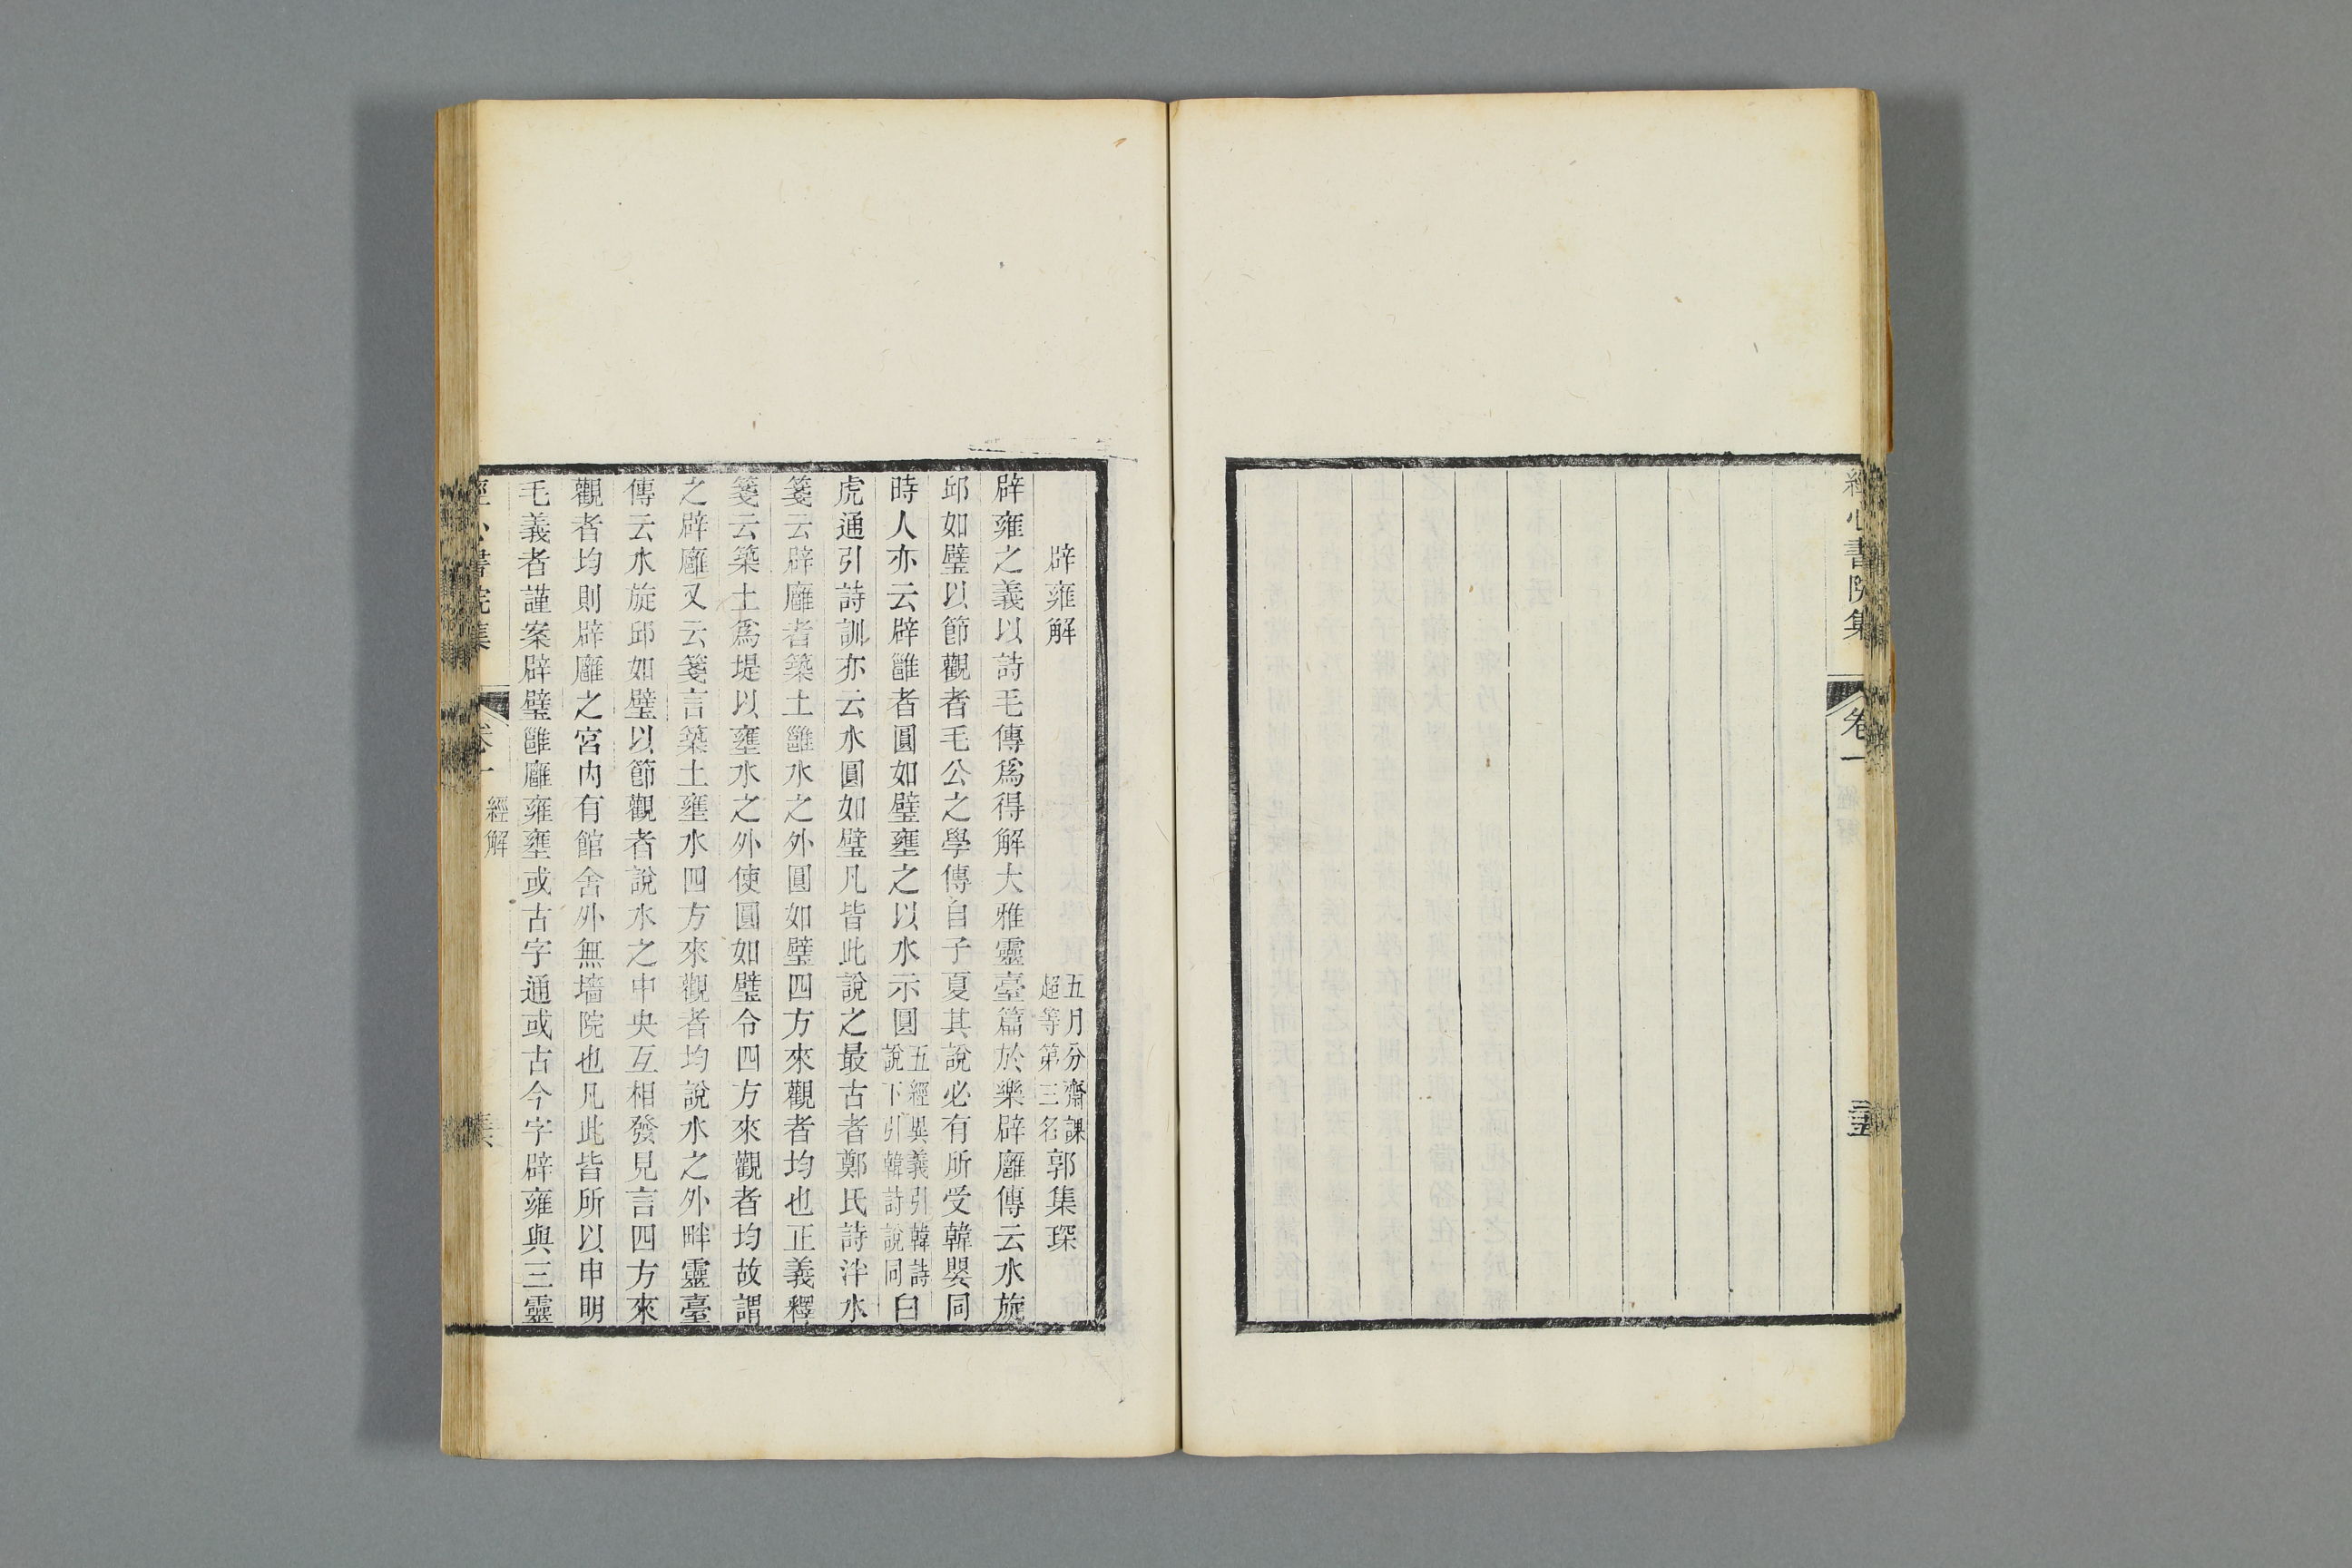 經心書院集
卷一
辟雍解
五月分齋課
超等第三名
郭集琛
辟雍之義以詩毛傳爲得解大雅靈臺篇於樂辟廱傳云水旋
邱如璧以節觀者毛公之學傳自子夏其說必有所受韓嬰同
時人亦云辟雝者圓如璧壅之以水示圓
五經異義引韓詩
說下引韓詩說同
白
虎通引詩訓亦云水圓如璧凡皆此說之最古者鄭氏詩泮水
箋云辟廱者築土雝水之外圓如璧四方來觀者均也正義釋
箋云築土爲堤以壅水之外使圓如璧令四方來觀者均故謂
之辟廱又云箋言築土壅水四方來觀者均說水之外畔靈臺
傳云水旋邱如璧以節觀者說水之中央互相發見言四方來
觀者均則辟廱之宮內有館舍外無墻院也凡此皆所以申明
毛義者謹案辟璧雝廱雍壅或古字通或古今字辟雍與三靈
經心書院集
卷一
經解